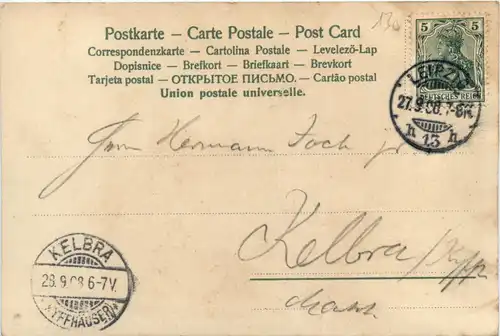 130
Postkarte – Carte Postale – Post Card
Correspondenzkarte – Cartolina Postale – Levelező-Lap
Dopisnice – Brefkort – Briefkaart – Brevkort
Tarjeta postal – ОТКРЫТОЕ ПИСЬМО. – Cartão postal
Union postale universelle.
5 5
DEUTSCHES REICH
LEIPZIG
27.9.08. 7-8N.
h 13 h
Hermann
jr
Kelbra
KELBRA
28.9.08 6-7V.
(KYFFHÄUSER)